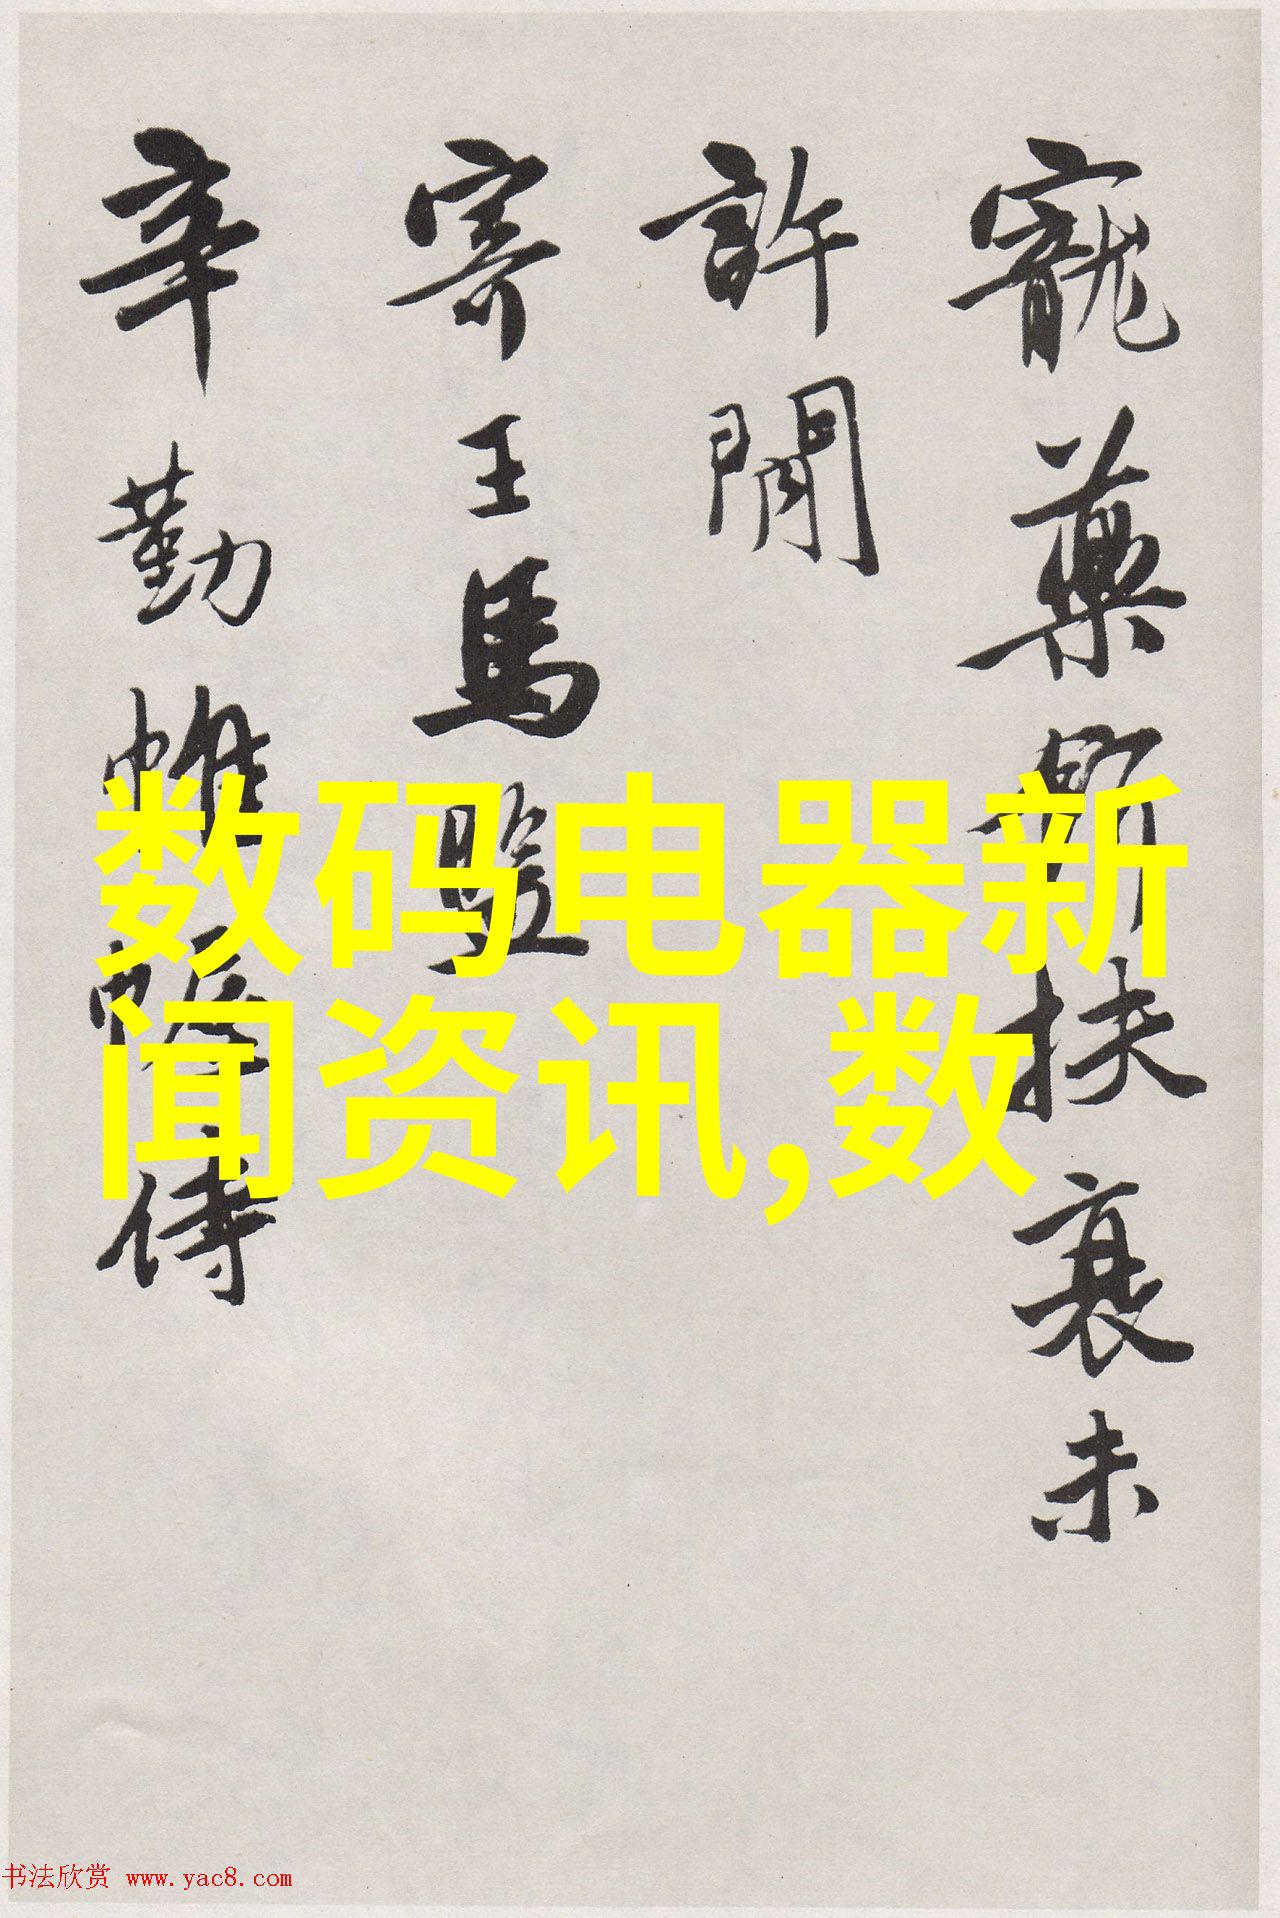 寵藥時扶衰未
許閒
寄王馬監
辛勤帷幄侍
数码电器新
闻资讯,数
书法欣赏 www.yac8.com